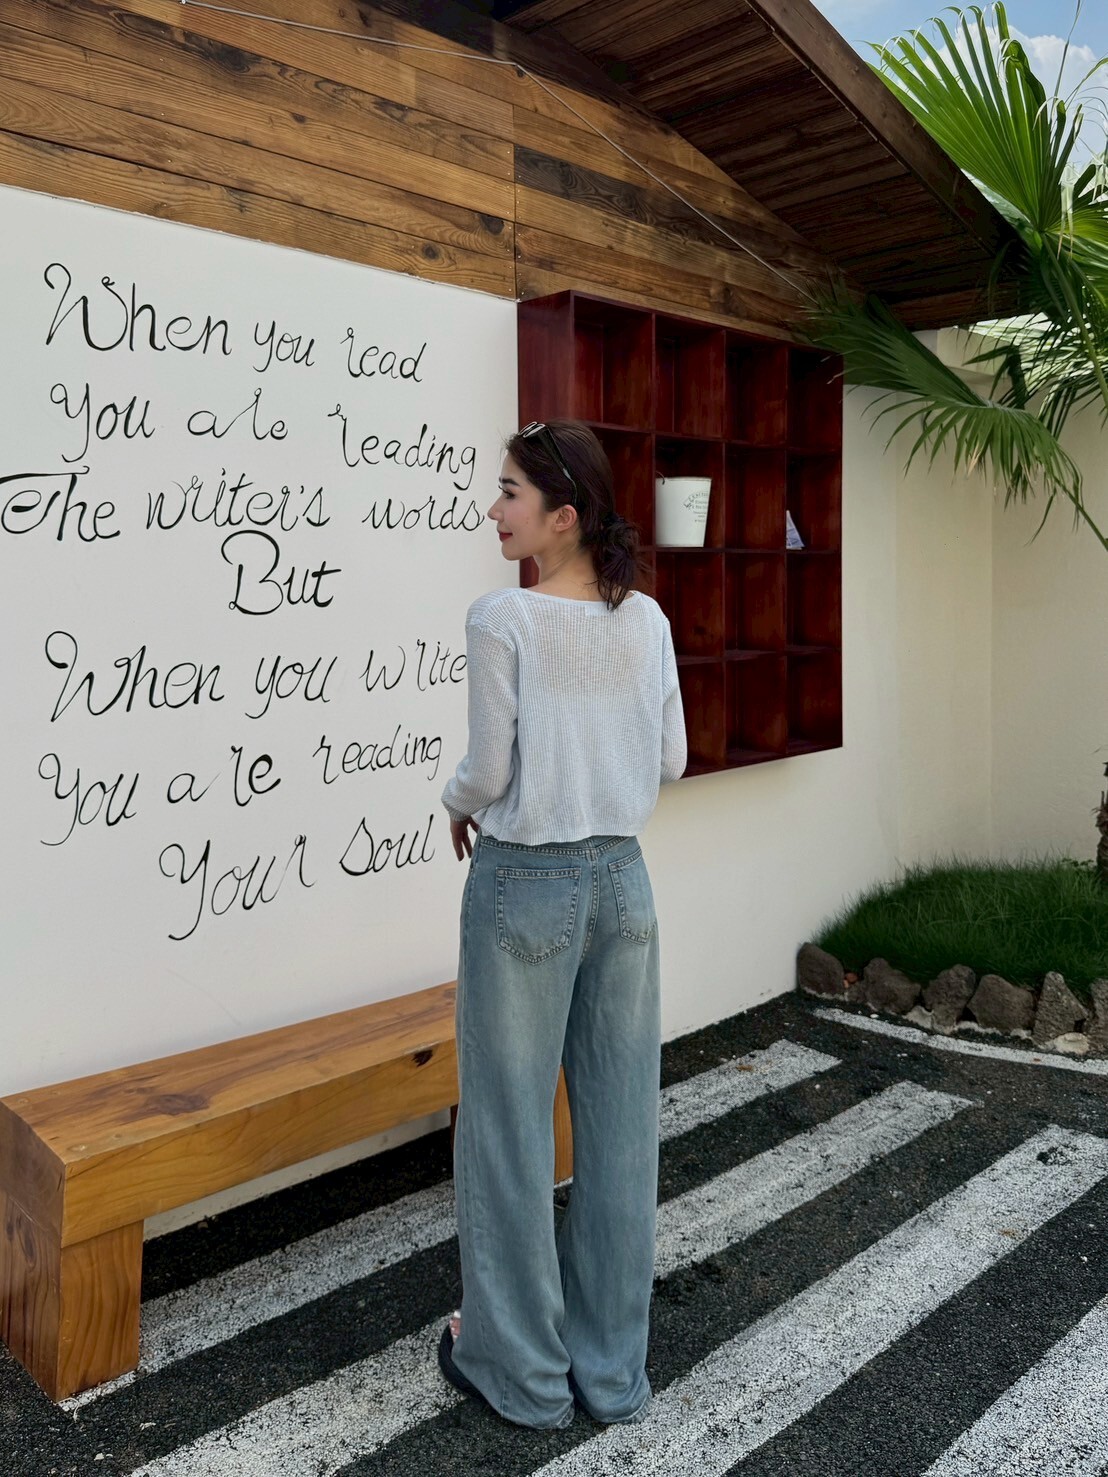 When you read
You are reading
The writer's words
But
When you write
You are reading
Your Soul